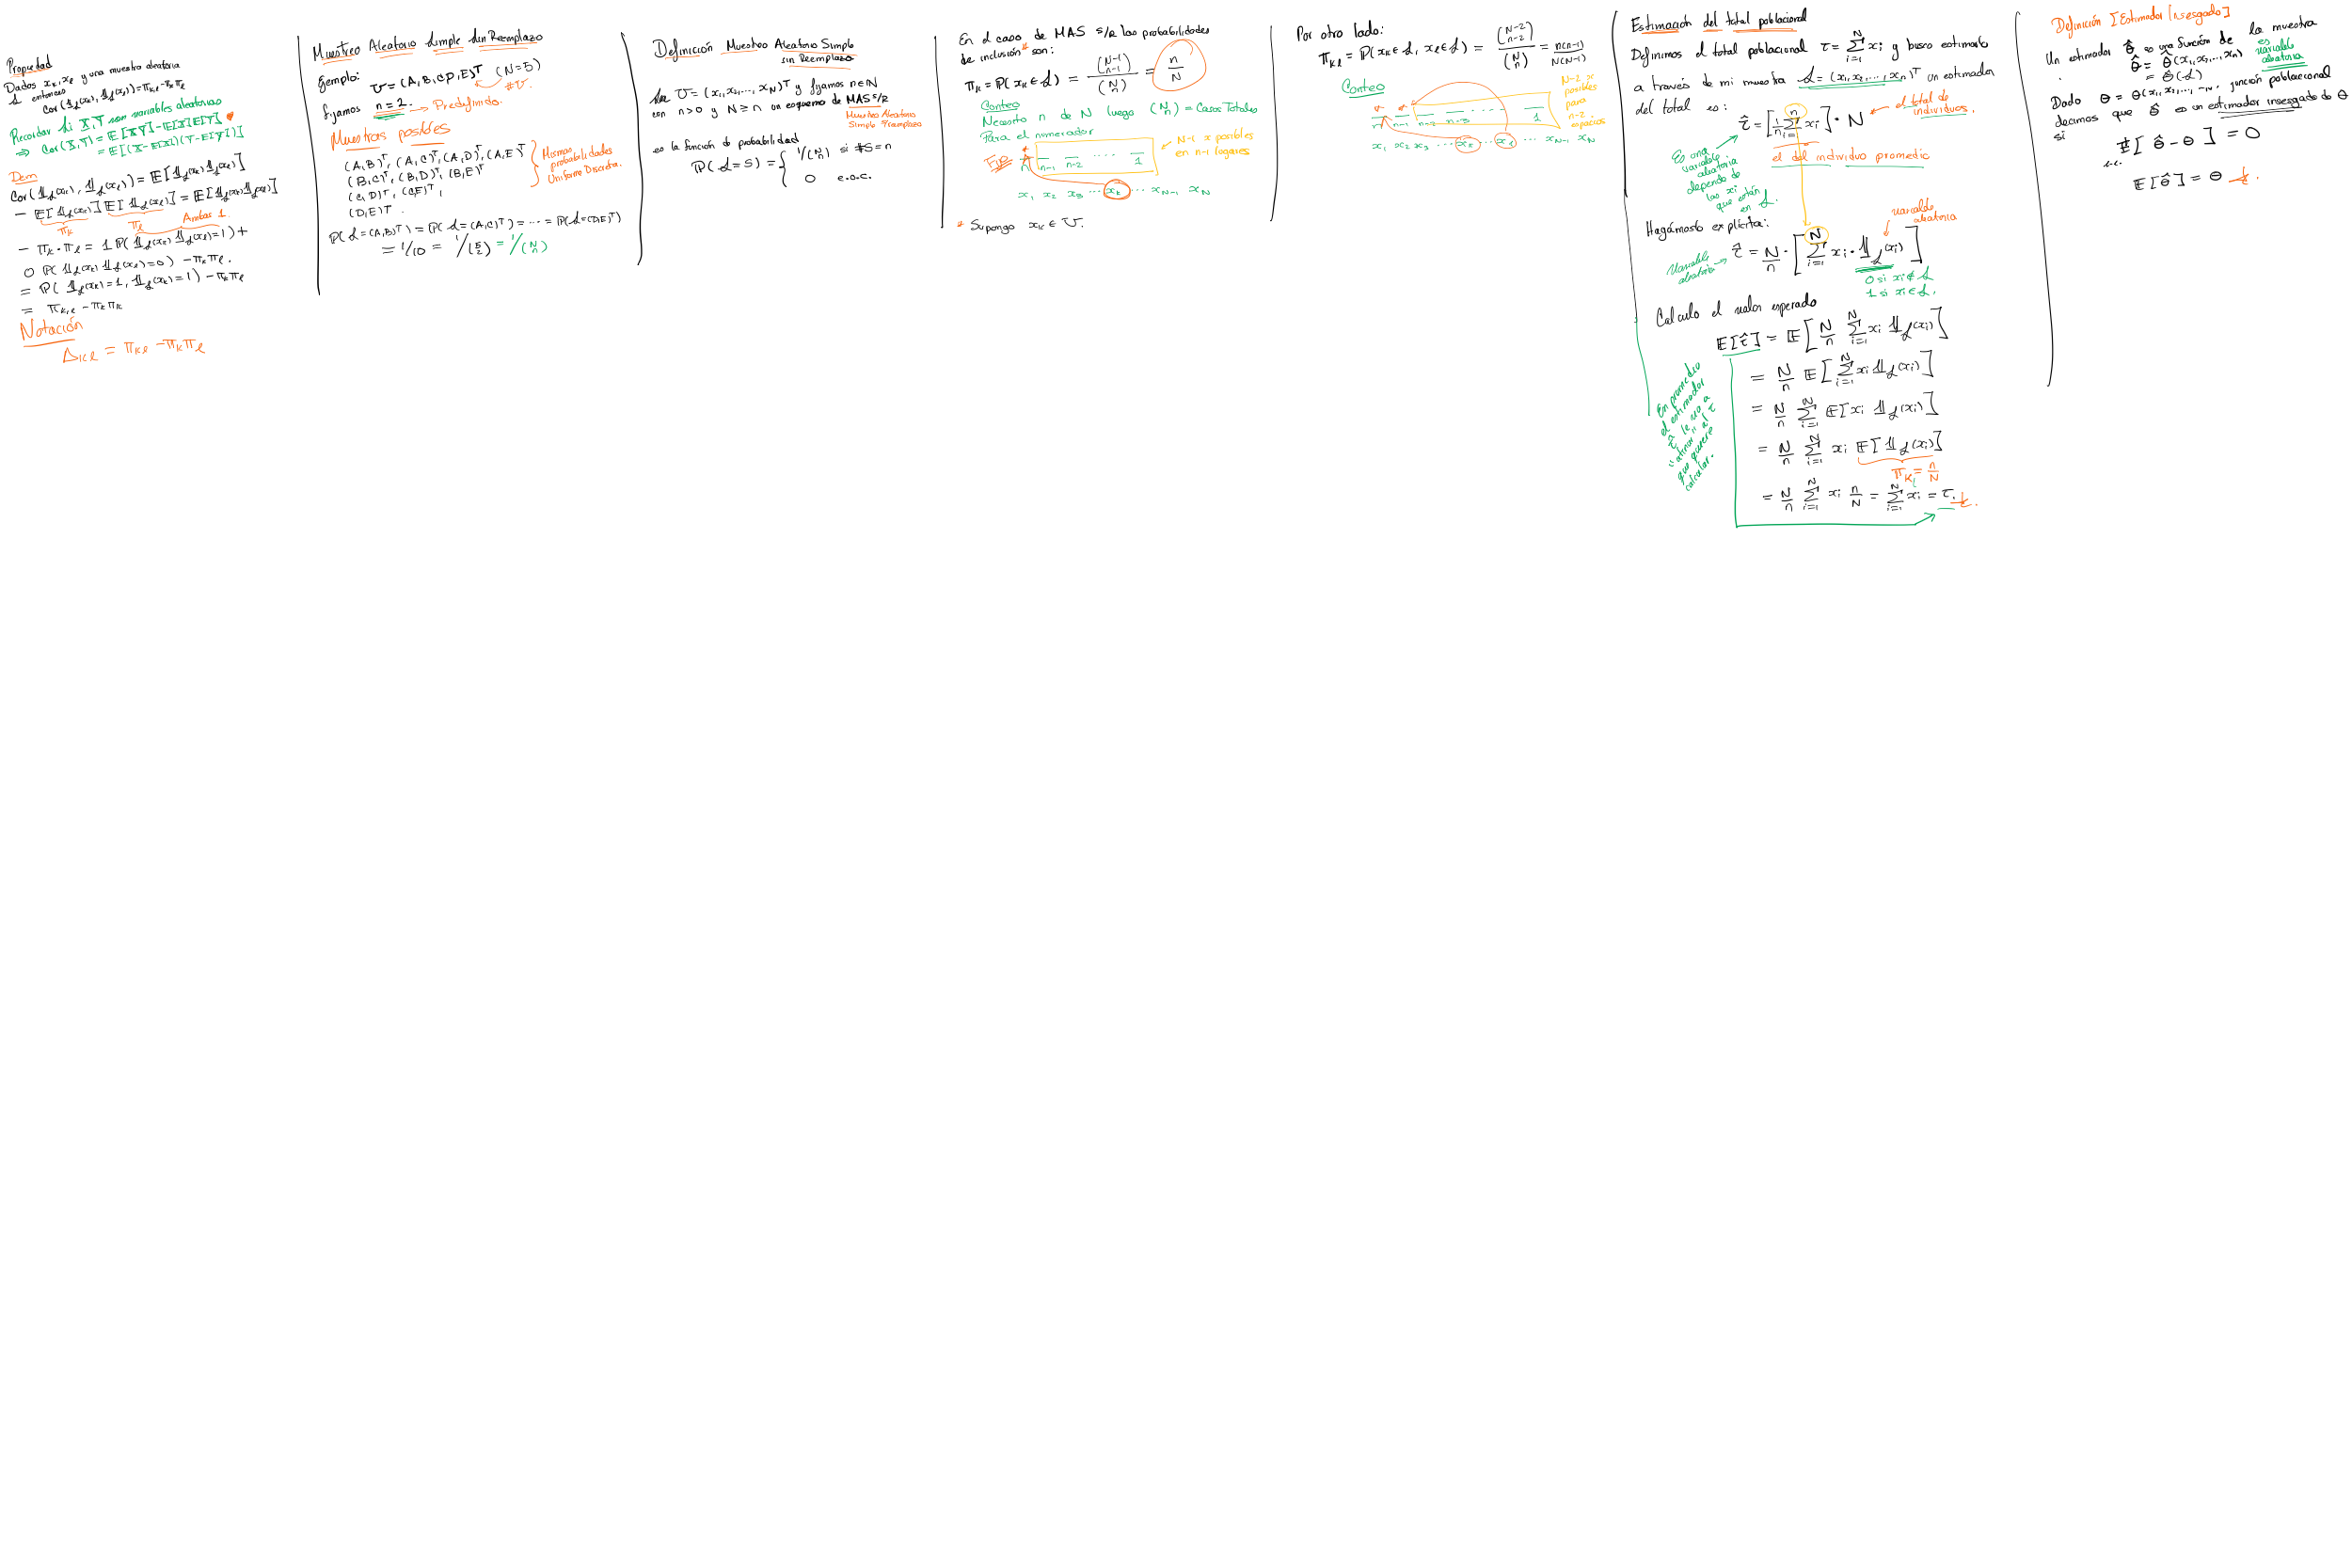 Propiedad
Dados xₖ, xₗ y una muestra aleatoria
𝒮 entonces
Cov(𝟙𝒮(xₖ), 𝟙𝒮(xₗ)) = πₖₗ - πₖπₗ
Recordar Si X, Y son variables aleatorias
⇒ Cov(X,Y) = E[XY] - E[X]E[Y]
= E[(X-E[X])(Y-E[Y])]
Dem
Cov(𝟙𝒮(xₖ), 𝟙𝒮(xₗ)) = E[𝟙𝒮(xₖ)𝟙𝒮(xₗ)]
- E[𝟙𝒮(xₖ)] E[𝟙𝒮(xₗ)] = E[𝟙𝒮(xₖ)𝟙𝒮(xₗ)]
πₖ πₗ Ambas 1.
- πₖ·πₗ = 1 P(𝟙𝒮(xₖ) 𝟙𝒮(xₗ)=1) +
0 P(𝟙𝒮(xₖ) 𝟙𝒮(xₗ)=0) - πₖπₗ.
= P(𝟙𝒮(xₖ)=1, 𝟙𝒮(xₗ)=1) - πₖπₗ
= πₖ,ₗ - πₗπₖ
Notación
Δₖₗ = πₖₗ - πₖπₗ
Muestreo Aleatorio Simple Sin Reemplazo
Ejemplo: U = (A, B, C, D, E)ᵀ (N=5)
#U.
Fijamos n=2. → Predefinido.
Muestras posibles
(A,B)ᵀ, (A,C)ᵀ, (A,D)ᵀ, (A,E)ᵀ
(B,C)ᵀ, (B,D)ᵀ, (B,E)ᵀ
(C,D)ᵀ, (C,E)ᵀ,
(D,E)ᵀ.
Mismas
probabilidades
Uniforme Discreta.
P(𝒮=(A,B)ᵀ) = P(𝒮=(A,C)ᵀ) = ··· = P(𝒮=(D,E)ᵀ)
= 1/10 = 1/(5 2) = 1/(N n)
Definición Muestreo Aleatorio Simple
sin Reemplazo
Sea U = (x₁, x₂, ..., x_N)ᵀ y fijamos n∈N
con n>0 y N≥n un esquema de MAS s/R
Muestreo Aleatorio
Simple Reemplazo
es la función de probabilidad
P(𝒮=S) = { 1/(N n) si #S=n
0 e.o.c.
En el caso de MAS s/R las probabilidades
de inclusión* son:
πₖ = P(xₖ∈𝒮) = (N-1 n-1)/(N n) = n/N
Conteo
Necesito n de N luego (N n) = Casos Totales
Para el numerador
Fijo n n-1 n-2 ···· 1
N-1 x posibles
en n-1 lugares
x₁ x₂ x₃ ··· xₖ ··· x_N-1 x_N
* Supongo xₖ∈U.
Por otro lado:
πₖₗ = P(xₖ∈𝒮, xₗ∈𝒮) = (N-2 n-2)/(N n) = n(n-1)/N(N-1)
Conteo
N-2 x
posibles
para
n-2
espacios
n n-1 n-2 n-3 ···· 1
x₁ x₂ x₃ ··· xₖ ··· xₗ ··· x_N-1 x_N
Estimación del total poblacional
Definimos el total poblacional τ = Σᵢ₌₁ᴺ xᵢ y busco estimarlo
a través de mi muestra 𝒮 = (x₁, x₂, ..., xₙ)ᵀ un estimador
del total es:
τ̂ = [1/n Σᵢ₌₁ⁿ xᵢ] · N
el total de
individuos.
el del individuo promedio
Es una
variable
aleatoria
depende de
las xᵢ
que están
en 𝒮.
Hagámoslo explícita:
variable
aleatoria
Variable
aleatoria → τ̂ = N/n · [Σᵢ₌₁ᴺ xᵢ · 𝟙𝒮(xᵢ)]
0 si xᵢ∉𝒮
1 si xᵢ∈𝒮.
Calculo el valor esperado
E[τ̂] = E[N/n Σᵢ₌₁ᴺ xᵢ 𝟙𝒮(xᵢ)]
= N/n E[Σᵢ₌₁ᴺ xᵢ 𝟙𝒮(xᵢ)]
= N/n Σᵢ₌₁ᴺ E[xᵢ 𝟙𝒮(xᵢ)]
= N/n Σᵢ₌₁ᴺ xᵢ E[𝟙𝒮(xᵢ)]
πₖ = n/N
= N/n Σᵢ₌₁ᴺ xᵢ n/N = Σᵢ₌₁ᴺ xᵢ = τ.
En promedio
el estimador
τ̂ le va a
"atinar" al τ
que quiere
calcular.
Definición [Estimador Insesgado]
Un estimador θ̂ es una función de la muestra
θ̂ = θ̂(x₁, x₂, ..., xₙ)
= θ̂(𝒮)
es
variable
aleatoria
Dado θ = θ(x₁, x₂, ..., x_N) función poblacional
decimos que θ̂ es un estimador insesgado de θ
si
E[θ̂ - θ] = 0
E[θ̂] = θ